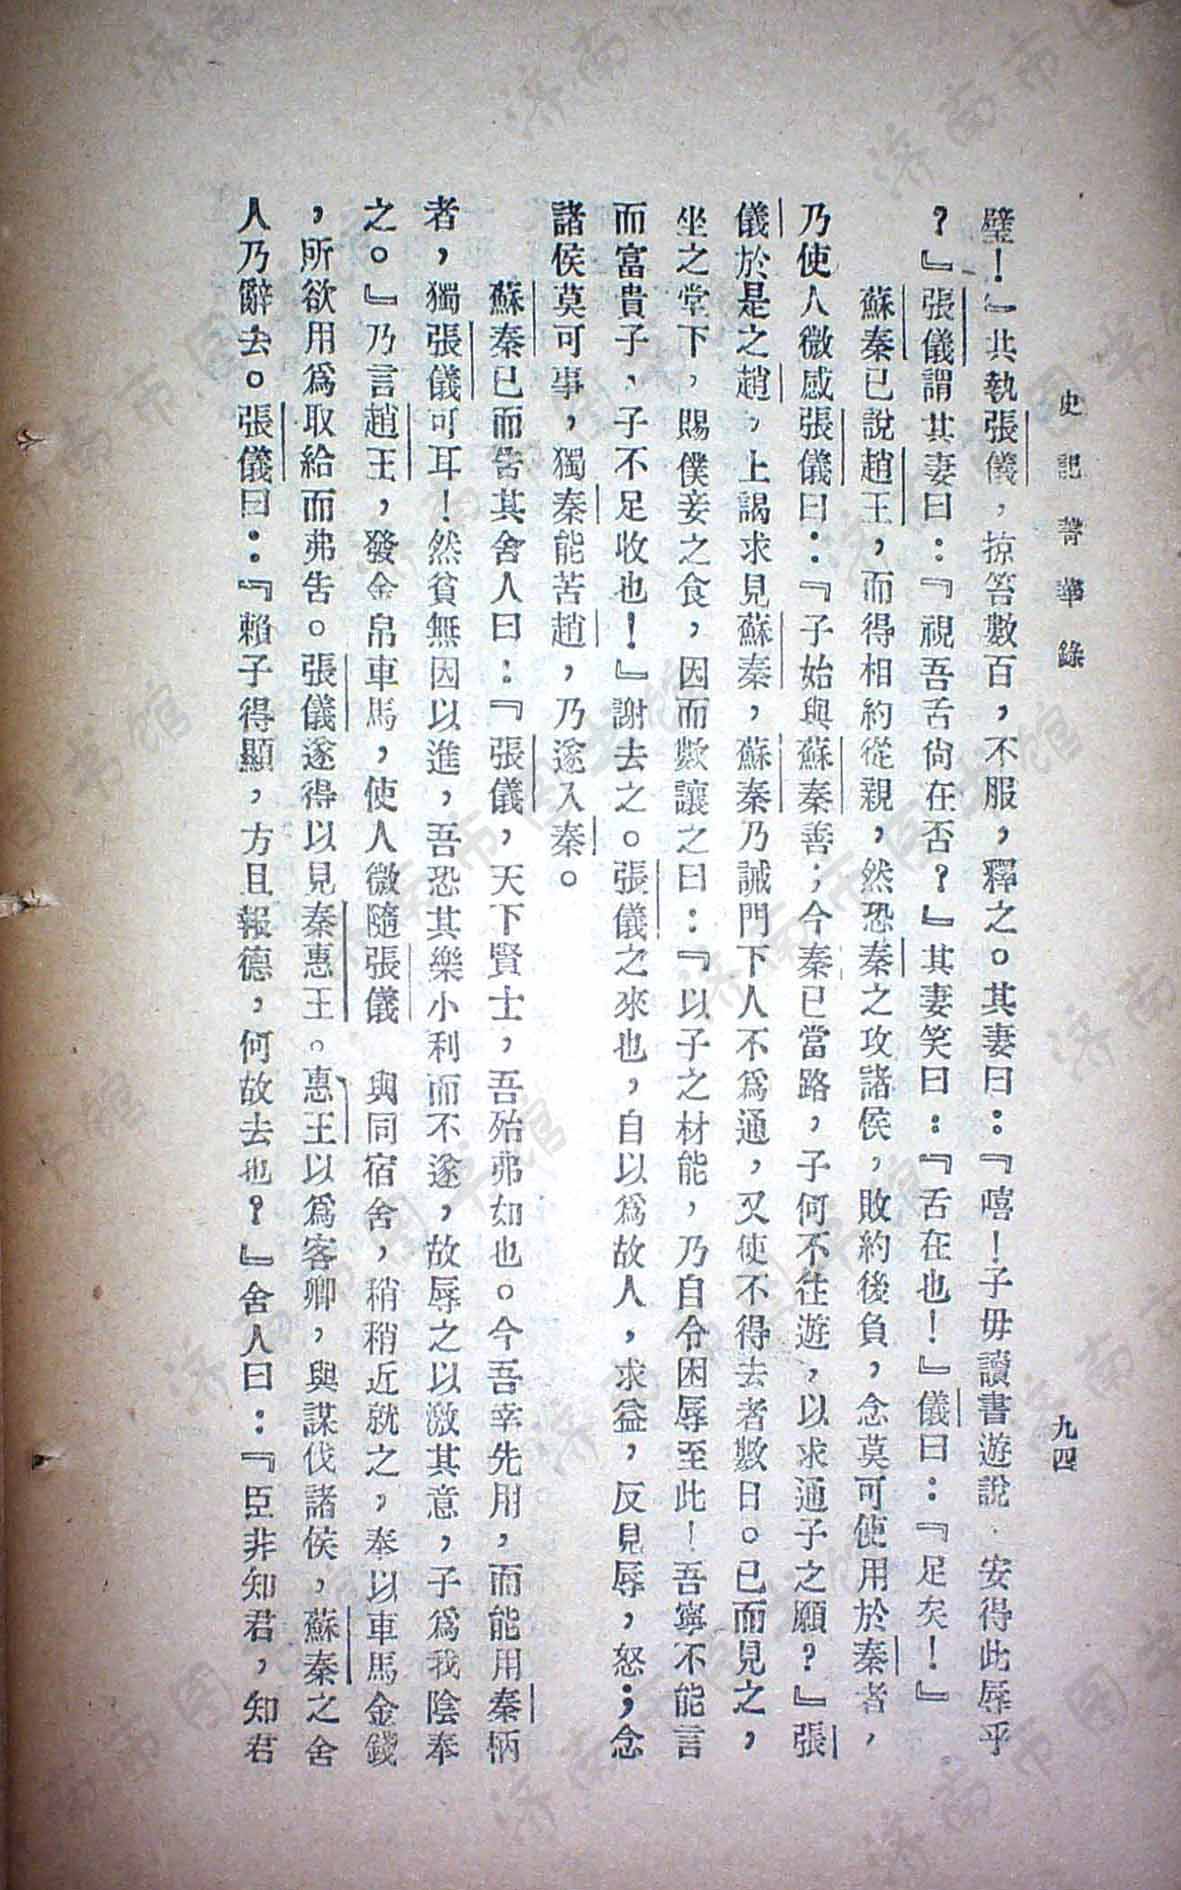 史記菁華錄
九四
璧！』共執張儀，掠笞數百，不服，釋之。其妻曰：『嘻！子毋讀書遊說，安得此辱乎
？』張儀謂其妻曰：『視吾舌尙在否？』其妻笑曰：『舌在也！』儀曰：『足矣！』
蘇秦已說趙王，而得相約從親，然恐秦之攻諸侯，敗約後負，念莫可使用於秦者，
乃使人微感張儀曰：『子始與蘇秦善；今秦已當路，子何不往遊，以求通子之願？』張
儀於是之趙，上謁求見蘇秦，蘇秦乃誡門下人不爲通，又使不得去者數日。已而見之，
坐之堂下，賜僕妾之食，因而數讓之曰：『以子之材能，乃自令困辱至此！吾寧不能言
而富貴子，子不足收也！』謝去之。張儀之來也，自以爲故人，求益，反見辱，怒；念
諸侯莫可事，獨秦能苦趙，乃遂入秦。
蘇秦已而告其舍人曰：『張儀，天下賢士，吾殆弗如也。今吾幸先用，而能用秦柄
者，獨張儀可耳！然貧無因以進，吾恐其樂小利而不遂，故辱之以激其意，子爲我陰奉
之。』乃言趙王，發金帛車馬，使人微隨張儀　與同宿舍，稍稍近就之，奉以車馬金錢
，所欲用爲取給而弗告。張儀遂得以見秦惠王。惠王以爲客卿，與謀伐諸侯，蘇秦之舍
人乃辭去。張儀曰：『賴子得顯，方且報德，何故去也？』舍人曰：『臣非知君，知君
济南市图书馆